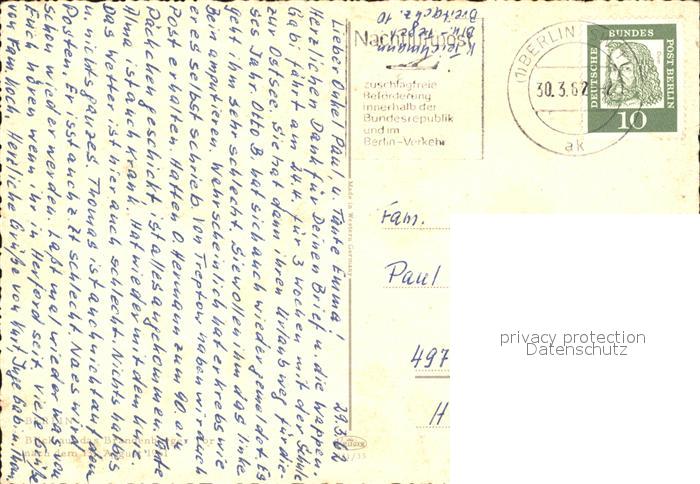 29.3.62
Lieber Onkel Paul, u. Tante Emma!
Herzlichen Dank für Deinen Brief u. die Wappen.
Gabi fährt am 24.4. für 3 Wochen mit der Schule
zur Ostsee. Sie hat dann ihren Urlaub weg für die-
ses Jahr. Otto B. hat sich auch wieder gemeldet. Es
geht ihm sehr schlecht. Sie wollen ihm das linke
Bein amputieren. Wahrscheinlich hat er Krebs wie
er es selbst schrieb. Von Treptow haben wir auch
Post erhalten. Hatten O. Hermann zum 90. ein
Päckchen geschickt ist alles angekommen. Tante
Ilma ist auch krank. Hat wieder mit dem
Das Wetter ist hier auch schlecht. Nichts halbes
u. nichts ganzes. Thomas ist auch nicht auf dem
Posten. Er isst auch z Zt schlecht. Na es wird
schon wieder werden. Laßt mal wieder was von
Euch hören wenn ihr in Herford seit. Viele Grüße
von Familie Herzliche Grüße von Kurt, Inge Gabi u. Thom.
K. Teichmann
Bln - Tegel
BERLIN
Blick auf das Brandenburger Tor
nach dem 13. August 1961
Made in Western Germany
Nachtluftpost
zuschlagfreie
Beförderung
innerhalb der
Bundesrepublik
und im
Berlin-Verkehr
(1) BERLIN
30.3.62
ak
DEUTSCHE BUNDESPOST BERLIN
10
Fam.
Paul
497
H
privacy protection
Datenschutz